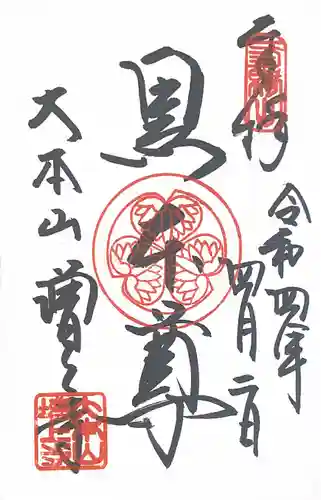 奉拝
令和四年
四月二日
黒本尊
大本山
増上寺